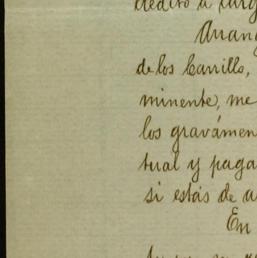 crédito a carg
Arran
de los Carrillo,
minente, me
los gravámen
tual y paga
si estás de a
En